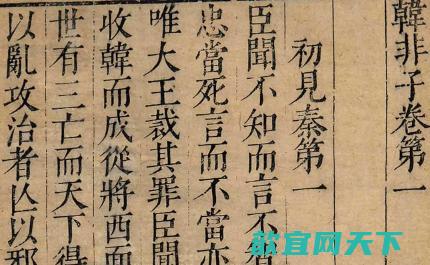 韓非子卷第一
初見秦第一
臣聞不知而言不
忠當死言而不當亦
唯大王裁其罪臣聞
收韓而成從將西面
世有三亡而天下得
以亂攻治者亾以邪
歙宜网天下